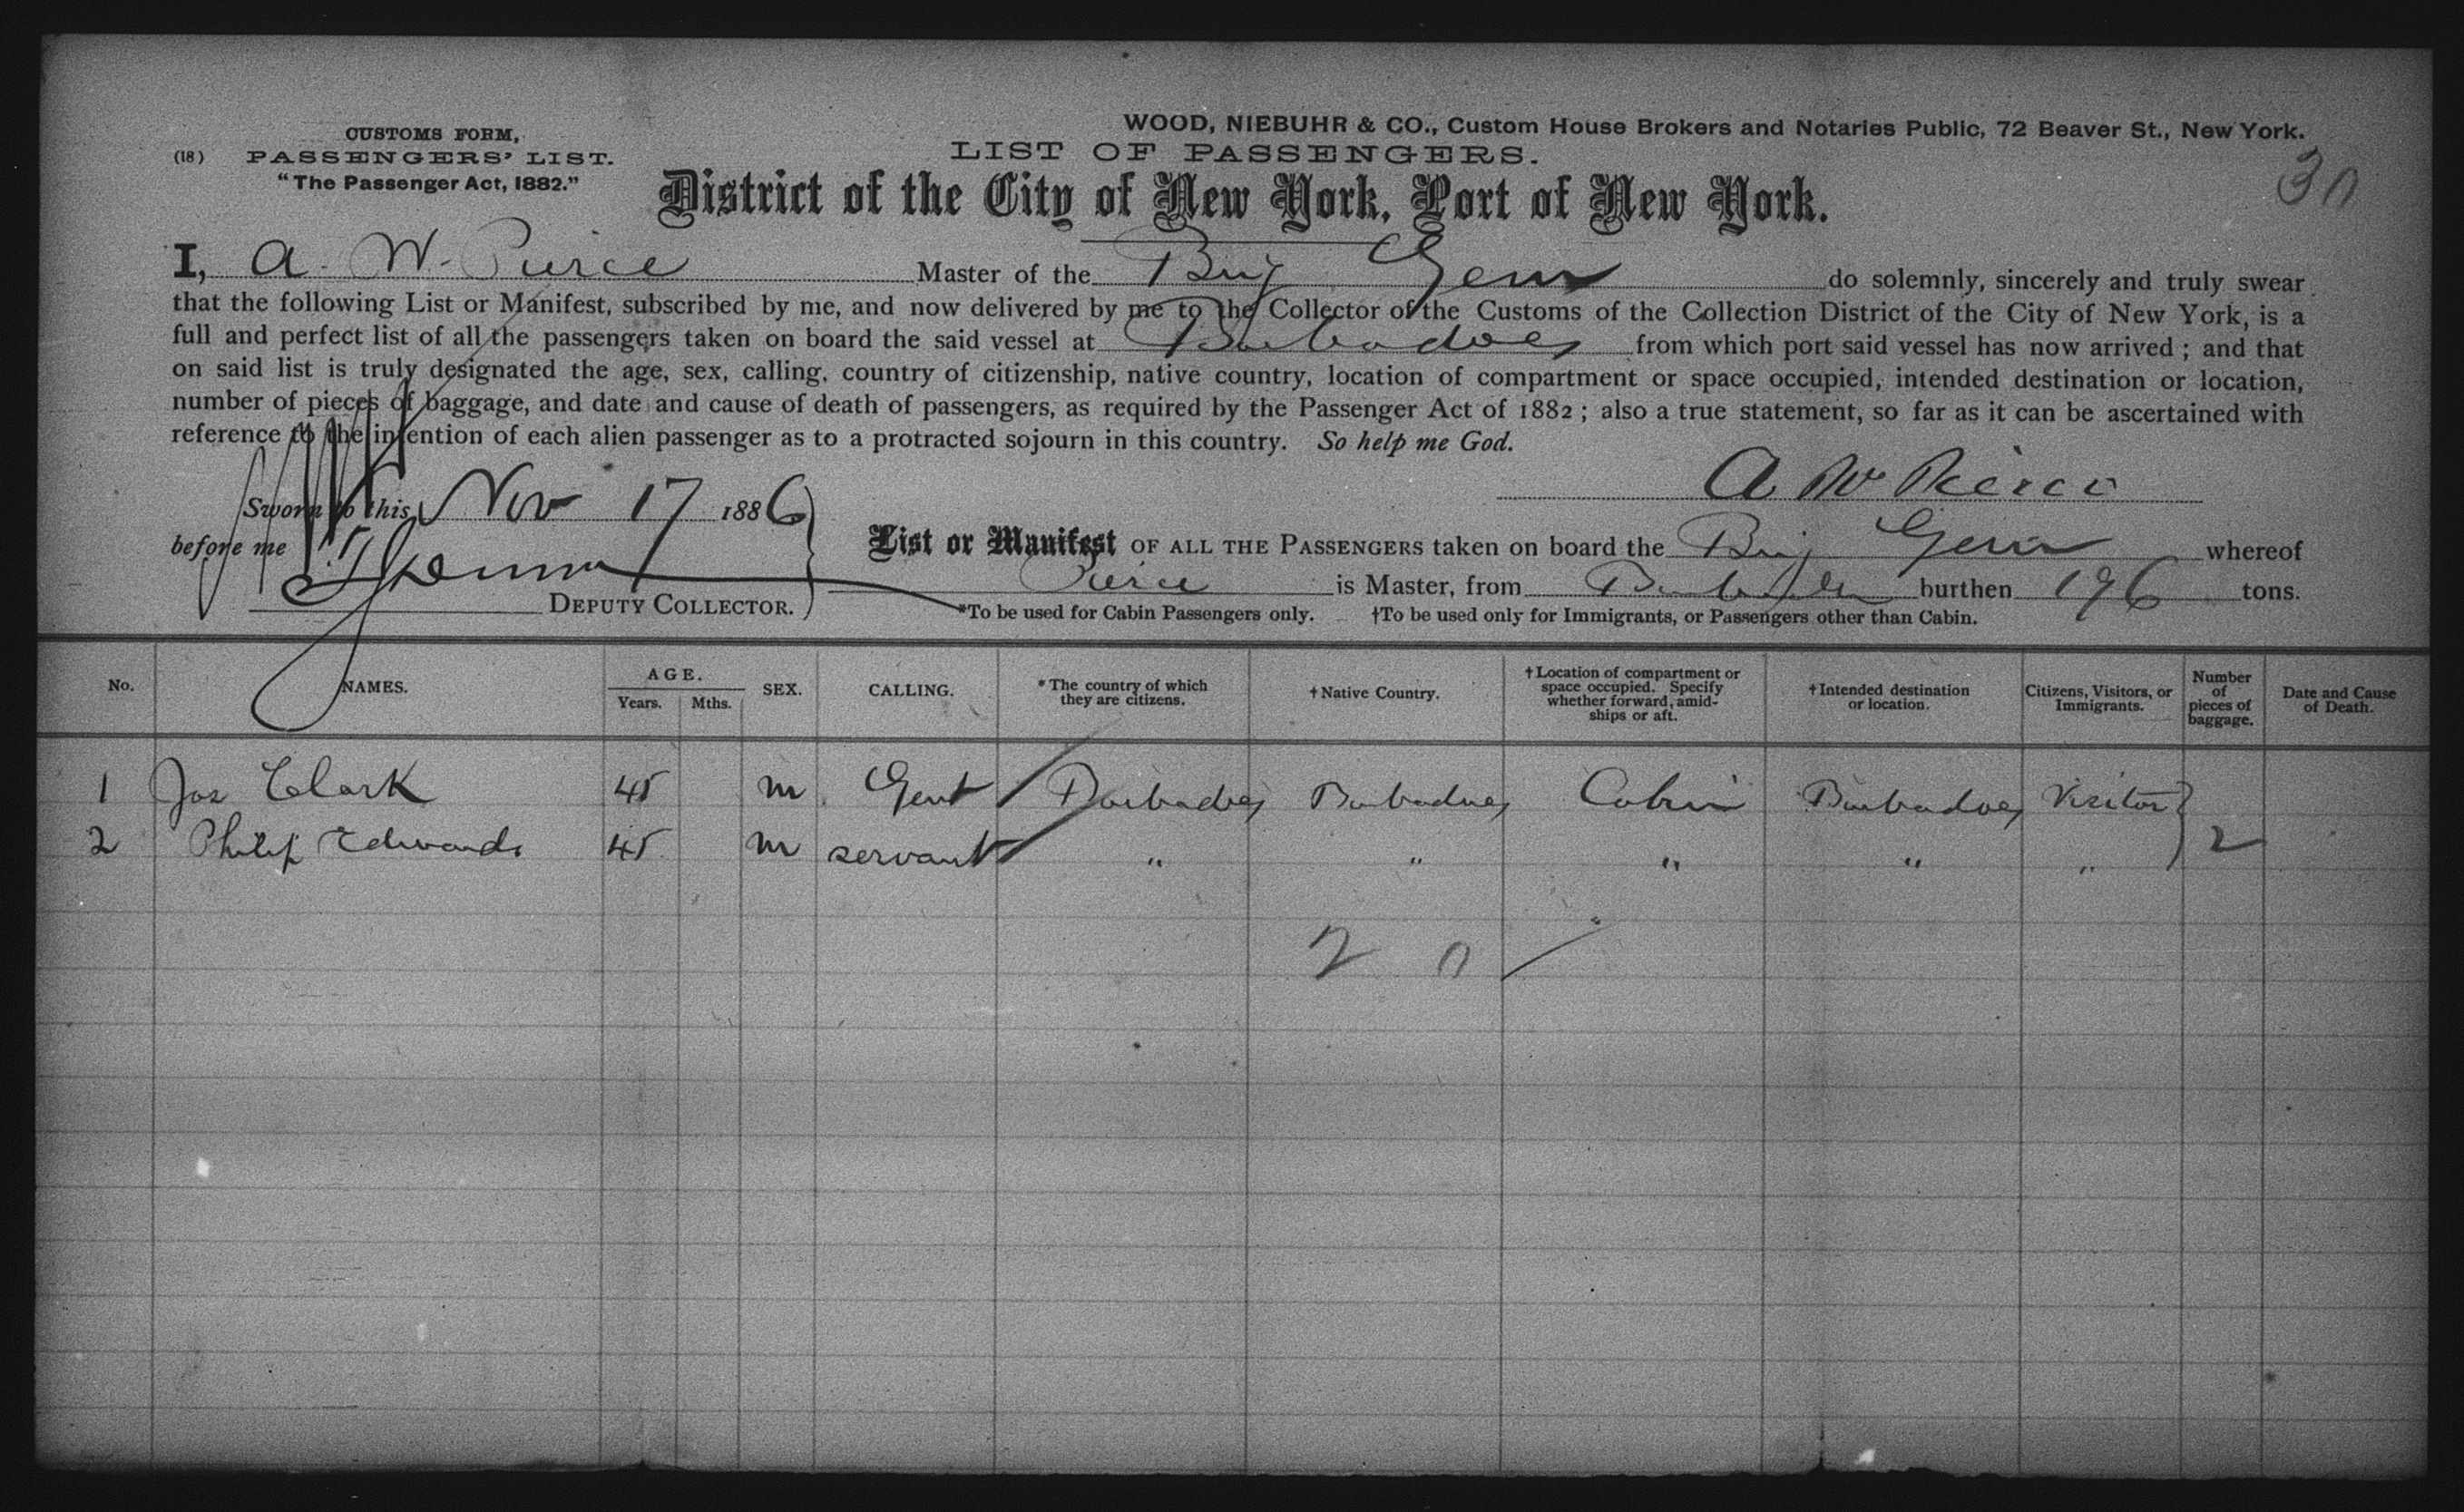 WOOD, NIEBUHR & CO., Custom House Brokers and Notaries Public, 72 Beaver St., New York.
CUSTOMS FORM,
(18) PASSENGERS' LIST.
"The Passenger Act, 1882."
LIST OF PASSENGERS.
30
District of the City of New York, Port of New York.
I, A. W. Pierce Master of the Brig Gem do solemnly, sincerely and truly swear
that the following List or Manifest, subscribed by me, and now delivered by me to the Collector of the Customs of the Collection District of the City of New York, is a
full and perfect list of all the passengers taken on board the said vessel at Barbadoes from which port said vessel has now arrived ; and that
on said list is truly designated the age, sex, calling, country of citizenship, native country, location of compartment or space occupied, intended destination or location,
number of pieces of baggage, and date and cause of death of passengers, as required by the Passenger Act of 1882 ; also a true statement, so far as it can be ascertained with
reference to the intention of each alien passenger as to a protracted sojourn in this country. So help me God.
A W Pierce
Sworn to this Nov 17 1886
before me
DEPUTY COLLECTOR.
List or Manifest OF ALL THE PASSENGERS taken on board the Brig Gem whereof
Pierce is Master, from Barbadoes burthen 196 tons.
*To be used for Cabin Passengers only. †To be used only for Immigrants, or Passengers other than Cabin.
No. NAMES. AGE. Years. Mths. SEX. CALLING. *The country of which they are citizens. †Native Country. †Location of compartment or space occupied. Specify whether forward, amidships or aft. †Intended destination or location. Citizens, Visitors, or Immigrants. Number of pieces of baggage. Date and Cause of Death.
1 Jos Clark 45 m Gent Barbadoes Barbadoes Cabin Barbadoes Visitor
2 Philip Edwards 45 m servant " " " " " 2
2 0